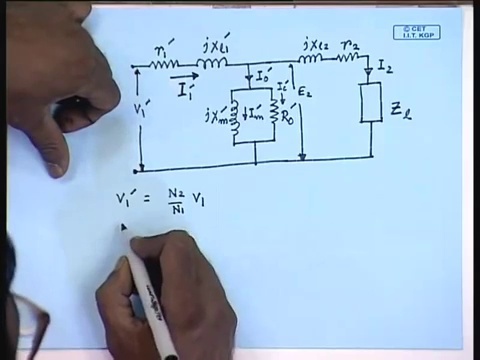 © CET
I.I.T. KGP
r₁′ jx_l₁′ jx_l₂ r₂
I₁′ I₀′ I₂
V₁′ jx_m′ I_m′ I_c′ R₀′ E₂ Z_l
V₁′ = N₂/N₁ V₁